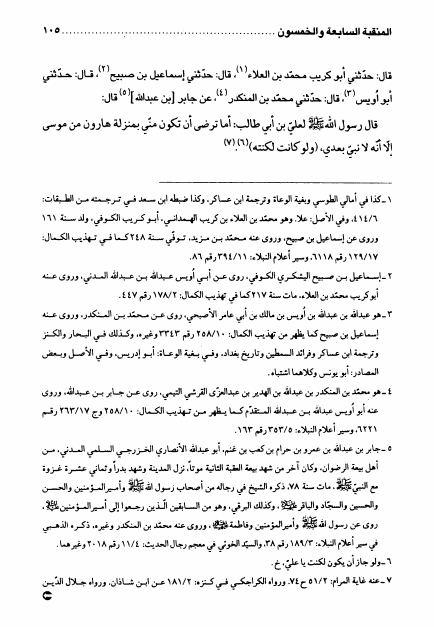 المنقبة السابعة والخمسون ........................................................ ١٠٥
قال: حدّثني أبو كريب محمّد بن العلاء(١)، قال: حدّثني إسماعيل بن صبيح(٢)، قال: حدّثني
أبو أويس(٣)، قال: حدّثني محمّد بن المنكدر(٤)، عن جابر [بن عبدالله](٥) قال:
قال رسول الله ﷺ لعليّ بن أبي طالب: أما ترضى أن تكون منّي بمنزلة هارون من موسى
إلّا أنّه لا نبيّ بعدي، (ولو كانت لكنته)(٦).(٧)
١ـ كذا في أمالي الطوسي وبغية الوعاة وترجمة ابن عساكر، وكذا ضبطه ابن سعد في ترجمته من الطبقات:
٤١٤/٦، وفي الأصل: علا. وهو محمّد بن العلاء بن كريب الهمداني، أبو كريب الكوفي، ولد سنة ١٦١
وروى عن إسماعيل بن صبيح، وروى عنه محمّد بن مزيد، توفّي سنة ٢٤٨ كما في تهذيب الكمال:
١٢٩/١٧ رقم ٦١١٨، وسير أعلام النبلاء: ٣٩٤/١١ رقم ٨٦.
٢ـ إسماعيل بن صبيح اليشكري الكوفي، روى عن أبي أويس عبدالله بن عبدالله المدني، وروى عنه
أبو كريب محمّد بن العلاء، مات سنة ٢١٧ كما في تهذيب الكمال: ١٧٨/٢ رقم ٤٤٧.
٣ـ هو عبدالله بن عبدالله بن أويس بن مالك بن أبي عامر الأصبحي، روى عن محمّد بن المنكدر، وروى عنه
إسماعيل بن صبيح كما يظهر من تهذيب الكمال: ٢٥٨/١٠ رقم ٣٣٤٣ وغيره، وكذلك في البحار والكنز
وترجمة ابن عساكر وفرائد السمطين وتاريخ بغداد، وفي بغية الوعاة: أبو إدريس، وفي الأصل وبعض
المصادر: أبو يونس وكلاهما اشتباه.
٤ـ هو محمّد بن المنكدر بن عبدالله بن الهدير بن عبدالعزّى القرشي التيمي، روى عن جابر بن عبدالله، وروى
عنه أبو أويس عبدالله بن عبدالله المتقدّم كما يظهر من تهذيب الكمال: ٢٥٨/١٠ و ج ٢٦٣/١٧ رقم
٦٢٢١، وسير أعلام النبلاء: ٣٥٣/٥ رقم ١٦٣.
٥ـ جابر بن عبدالله بن عمرو بن حرام بن كعب بن غنم، أبو عبدالله الأنصاري الخزرجي السلمي المدني، من
أهل بيعة الرضوان، وكان آخر من شهد بيعة العقبة الثانية موتاً، نزل المدينة وشهد بدراً وثماني عشرة غزوة
مع النبيّ ﷺ، مات سنة ٧٨، ذكره الشيخ في رجاله من أصحاب رسول الله ﷺ وأمير المؤمنين والحسن
والحسين والسجّاد والباقر ﵈، وكذلك البرقي، وهو من السابقين الّذين رجعوا إلى أمير المؤمنين ﵇،
روى عن رسول الله ﷺ وأمير المؤمنين وفاطمة ﵉، وروى عنه محمّد بن المنكدر وغيره، ذكره الذهبي
في سير أعلام النبلاء: ١٨٩/٣ رقم ٣٨، والسيّد الخوئي في معجم رجال الحديث: ١١/٤ رقم ٢٠١٨ وغيرهما.
٦ـ ولو جاز أن يكون لكنت يا عليّ، خ.
٧ـ عنه غاية المرام: ٥١/٢ ح ٧٤. ورواه الكراجكي في كنزه: ١٨١/٢ عن ابن شاذان. ورواه جلال الدّين